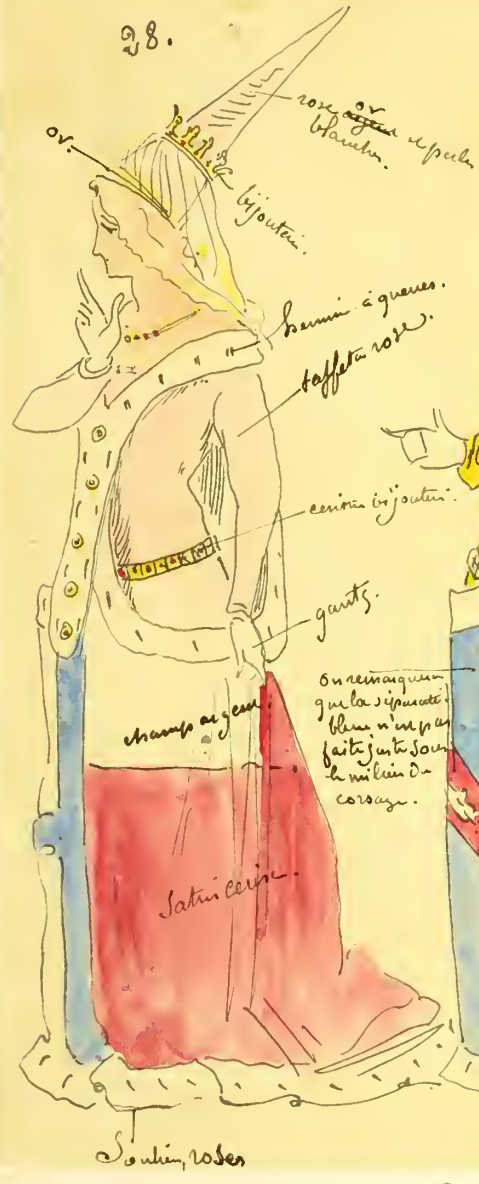 28.
or.
rose argent or et perles
blanches.
bijouterie.
hermine à queues.
taffetas rose.
ceinture bijouterie.
gants.
on remarquera
que la séparation
bleue n'est pas
faite juste sous
le milieu du
corsage.
champ argent.
Satin cerise.
Souliers roses